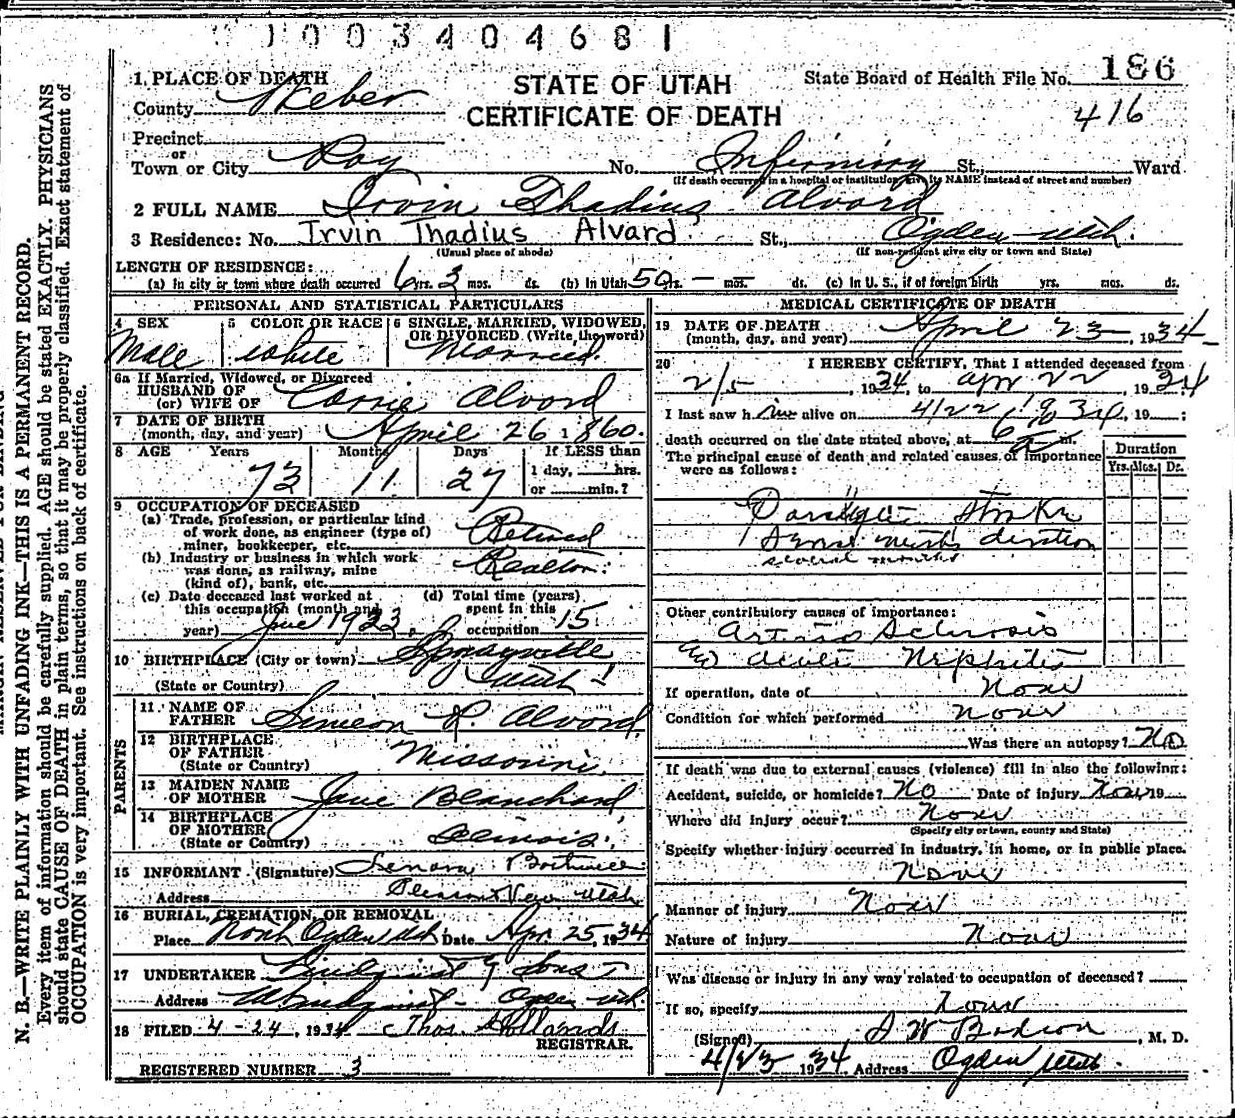 1003404681
1. PLACE OF DEATH
County Weber
STATE OF UTAH
CERTIFICATE OF DEATH
State Board of Health File No. 186
416
Precinct
or
Town or City Roy No. Infermiry St., Ward
(If death occurred in a hospital or institution, give its NAME instead of street and number)
2 FULL NAME Irvin Thadius Alvord
3 Residence: No. Irvin Thadius Alvard St., Ogden Utah.
(Usual place of abode) (If non-resident give city or town and State)
LENGTH OF RESIDENCE:
(a) In city or town where death occurred 6 yrs. 3 mos. ds. (b) In Utah 50 yrs. — mos. ds. (c) In U. S., if of foreign birth yrs. mos. ds.
PERSONAL AND STATISTICAL PARTICULARS
4 SEX
Male
5 COLOR OR RACE
White
6 SINGLE, MARRIED, WIDOWED, OR DIVORCED (Write the word)
Married.
6a If Married, Widowed, or Divorced
HUSBAND OF
(or) WIFE OF Carrie Alvord
7 DATE OF BIRTH
(month, day, and year) April 26 1860.
8 AGE Years Months Days If LESS than
73 11 27 1 day, hrs.
or min.?
9 OCCUPATION OF DECEASED
(a) Trade, profession, or particular kind
of work done, as engineer (type of)
miner, bookkeeper, etc. Retired
(b) Industry or business in which work
was done, as railway, mine
(kind of), bank, etc. Realtor.
(c) Date deceased last worked at
this occupation (month and
year) June 1933.
(d) Total time (years)
spent in this
occupation 15
10 BIRTHPLACE (City or town)
(State or Country) Utah
PARENTS
11 NAME OF
FATHER Simeon Alvord.
12 BIRTHPLACE
OF FATHER
(State or Country) Missouri.
13 MAIDEN NAME
OF MOTHER Jane Blanchard
14 BIRTHPLACE
OF MOTHER
(State or Country) Illinois.
15 INFORMANT (Signature) Lenora
Address Utah
16 BURIAL, CREMATION, OR REMOVAL
Place North Ogden Utah Date Apr 25, 1934
17 UNDERTAKER Lindquist & Sons
Address Ogden Utah.
18 FILED 4-24, 1934 Thos. Hollands
REGISTRAR.
REGISTERED NUMBER 3
MEDICAL CERTIFICATE OF DEATH
19 DATE OF DEATH
(month, day, and year) April 23, 1934
20 I HEREBY CERTIFY, That I attended deceased from
2/5, 1934, to Apr 22, 1934
I last saw him alive on 4/22 1934, 19 ;
death occurred on the date stated above, at 6 m.
The principal cause of death and related causes of importance
were as follows:
Duration
Yrs. Mos. Ds.
duration
several months
Other contributory causes of importance:
Arterio Sclerosis
acute Nephritis
If operation, date of None
Condition for which performed None
Was there an autopsy? No
If death was due to external causes (violence) fill in also the following:
Accident, suicide, or homicide? No Date of injury None 19
Where did injury occur? None
(Specify city or town, county and State)
Specify whether injury occurred in industry, in home, or in public place.
None
Manner of injury None
Nature of injury None
Was disease or injury in any way related to occupation of deceased?
If so, specify None
(Signed) , M. D.
4/23 1934 Address Ogden Utah
N. B.—WRITE PLAINLY WITH UNFADING INK—THIS IS A PERMANENT RECORD.
Every item of information should be carefully supplied. AGE should be stated EXACTLY. PHYSICIANS
should state CAUSE OF DEATH in plain terms, so that it may be properly classified. Exact statement of
OCCUPATION is very important. See instructions on back of certificate.